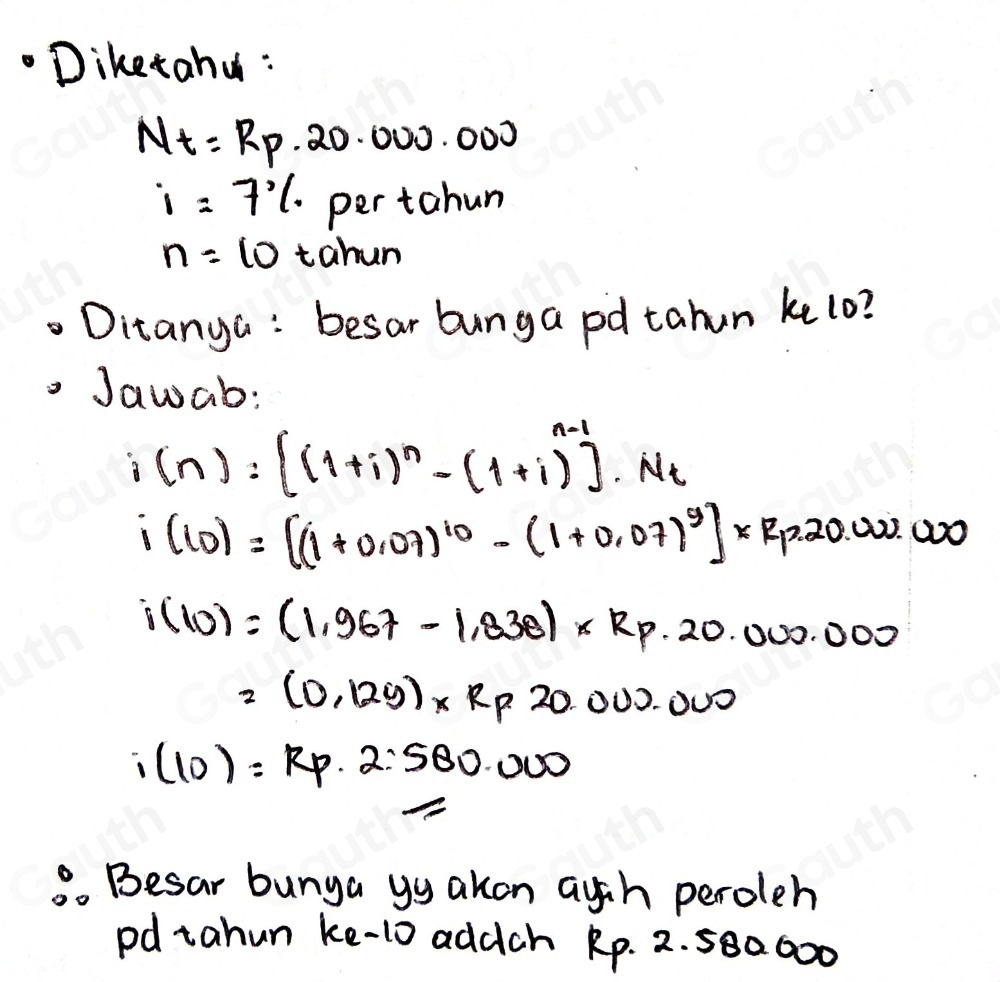 • Diketahui :
Nt = Rp. 20.000.000
i = 7% per tahun
n = 10 tahun
• Ditanya : besar bunga pd tahun ke 10?
• Jawab:
i(n) = [(1+i)ⁿ - (1+i)ⁿ⁻¹]. Nt
i(10) = [(1+0,07)¹⁰ - (1+0,07)⁹] × Rp.20.000.000
i(10) = (1,967 - 1,838) × Rp. 20.000.000
= (0,129) × Rp 20.000.000
i(10) = Rp. 2.580.000
∴ Besar bunga yg akan ayih peroleh
pd tahun ke-10 adalah Rp. 2.580.000